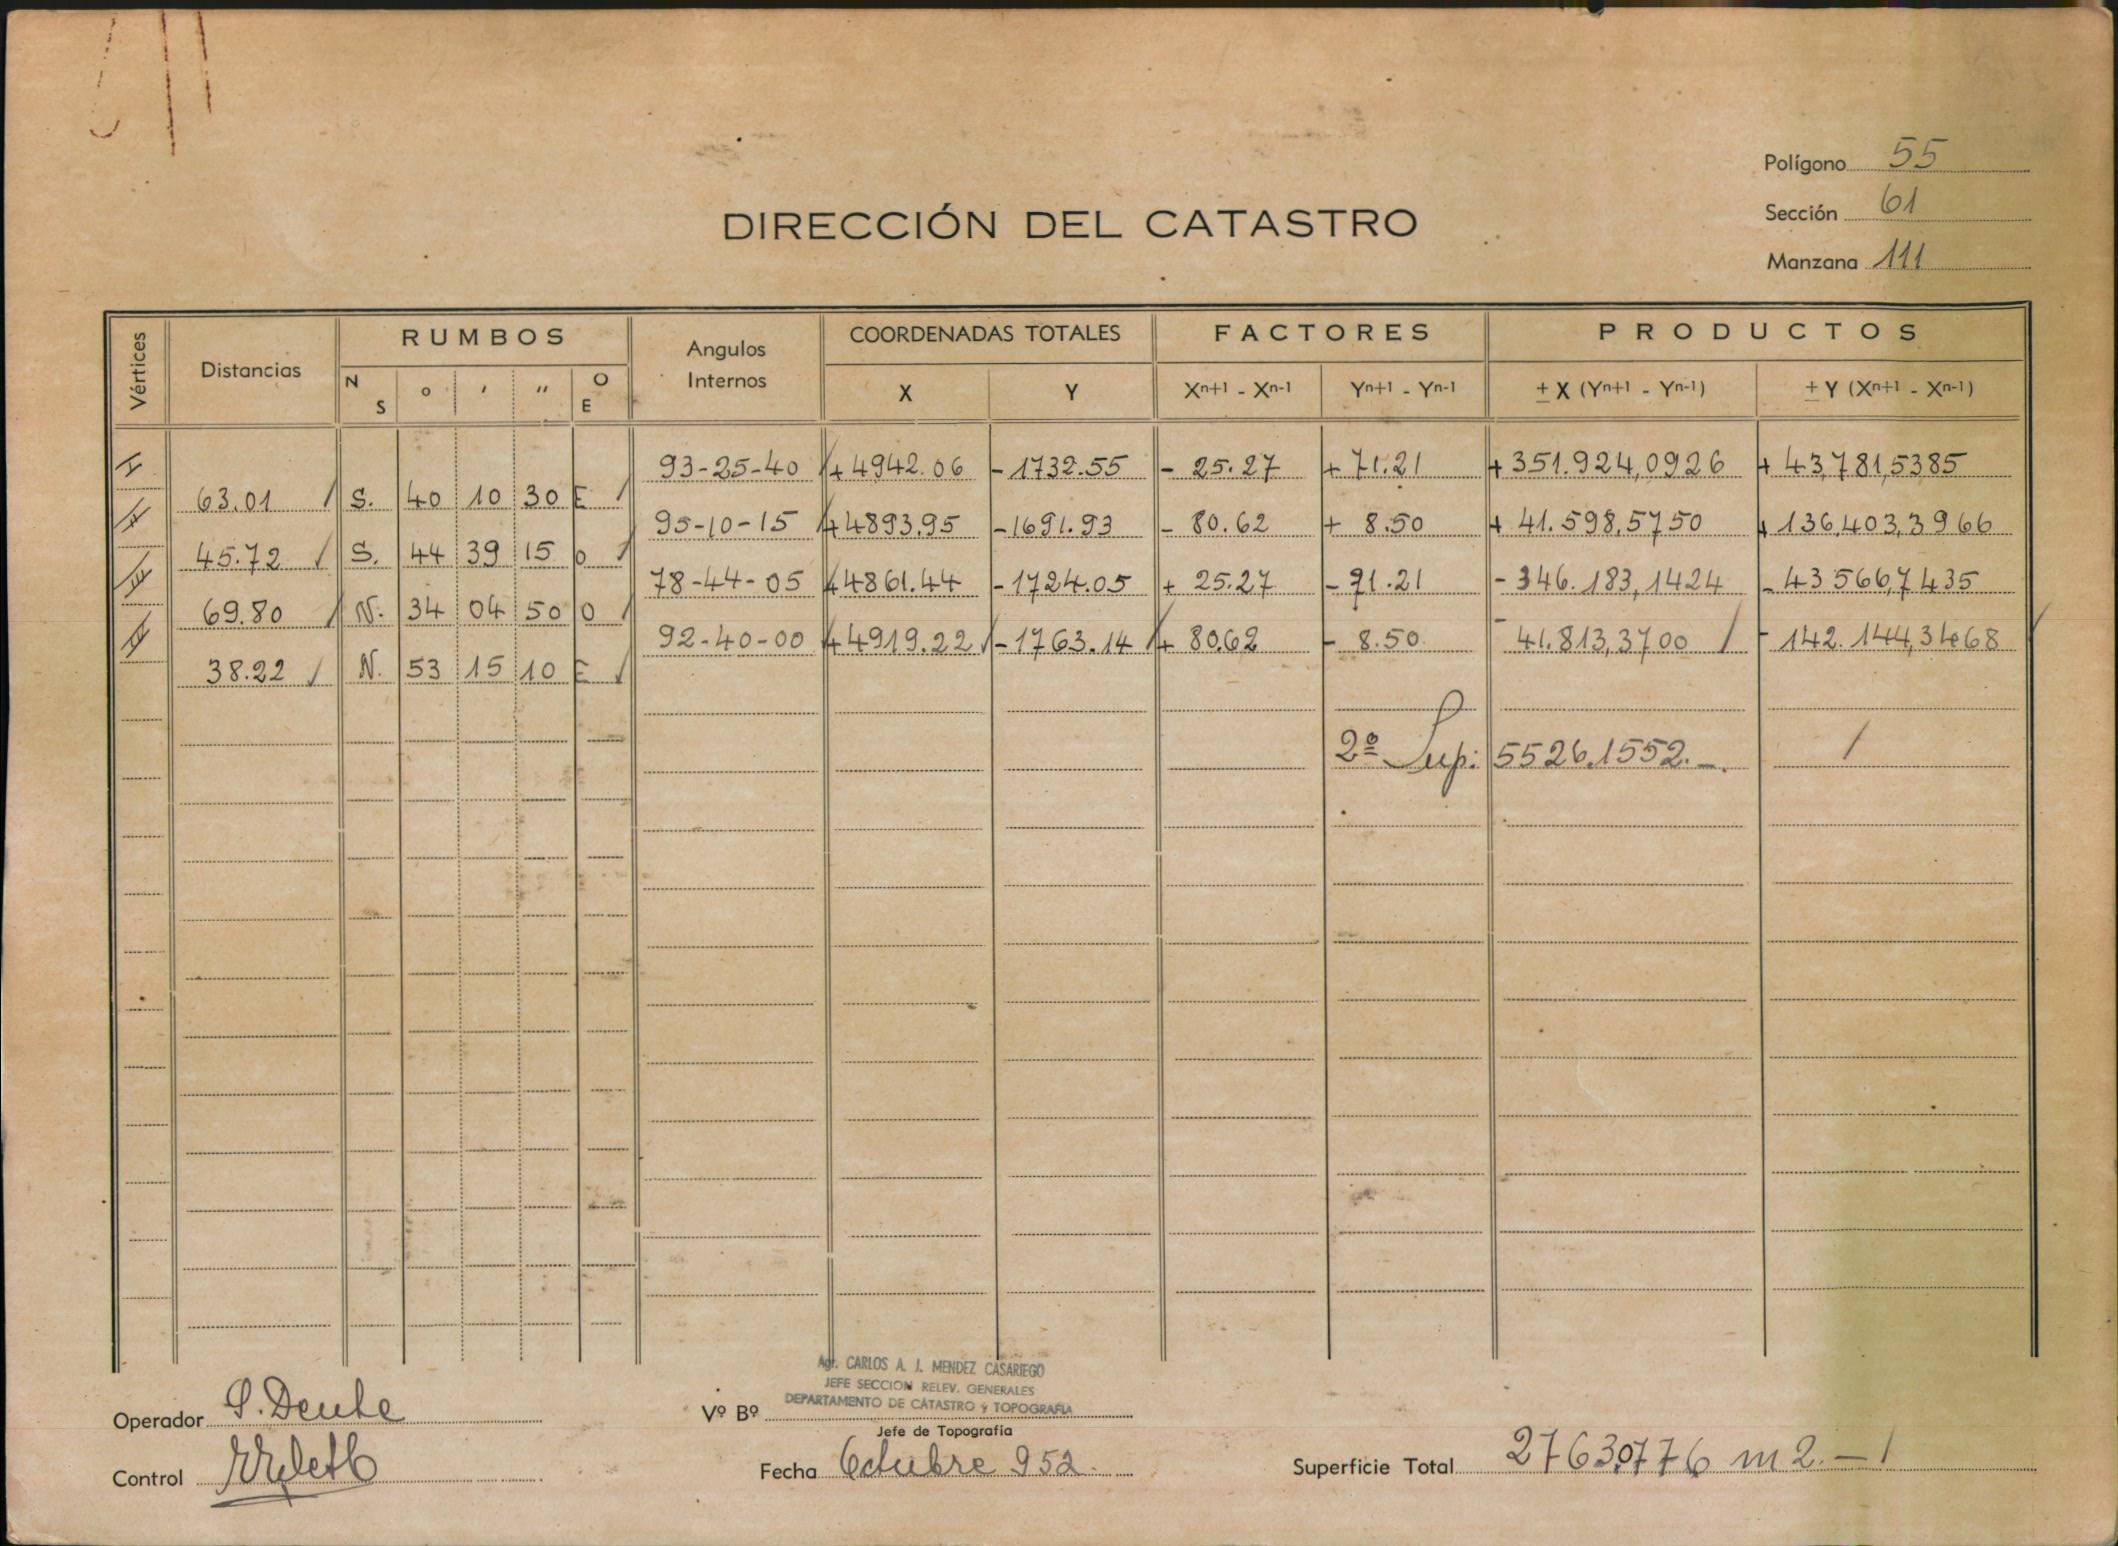 Polígono 55
DIRECCIÓN DEL CATASTRO
Sección 61
Manzana 111
Vértices Distancias RUMBOS Angulos Internos COORDENADAS TOTALES FACTORES PRODUCTOS
N S ° ' " O E X Y Xn+1 - Xn-1 Yn+1 - Yn-1 ± X (Yn+1 - Yn-1) ± Y (Xn+1 - Xn-1)
I 93-25-40 +4942.06 -1732.55 - 25.27 +71.21 +351.924,0926 + 43,781,5385
63.01 S. 40 10 30 E
II 95-10-15 +4893.95 -1691.93 - 80.62 + 8.50 + 41.598,5750 + 136,403,3966
45.72 S. 44 39 15 O
III 78-44-05 +4861.44 -1724.05 + 25.27 -71.21 - 346.183,1424 - 43 566,7435
69.80 N. 34 04 50 O
IV 92-40-00 +4919.22 -1763.14 + 80.62 - 8.50 - 41.813,3700 - 142.144,3468
38.22 N. 53 15 10 E
2º Sup: 5526,1552.-
Agr. CARLOS A. J. MENDEZ CASARIEGO
JEFE SECCION RELEV. GENERALES
DEPARTAMENTO DE CATASTRO y TOPOGRAFIA
Operador
Vº Bº
Jefe de Topografía
Control
Fecha Octubre 952.
Superficie Total 2763,0776 m2.-